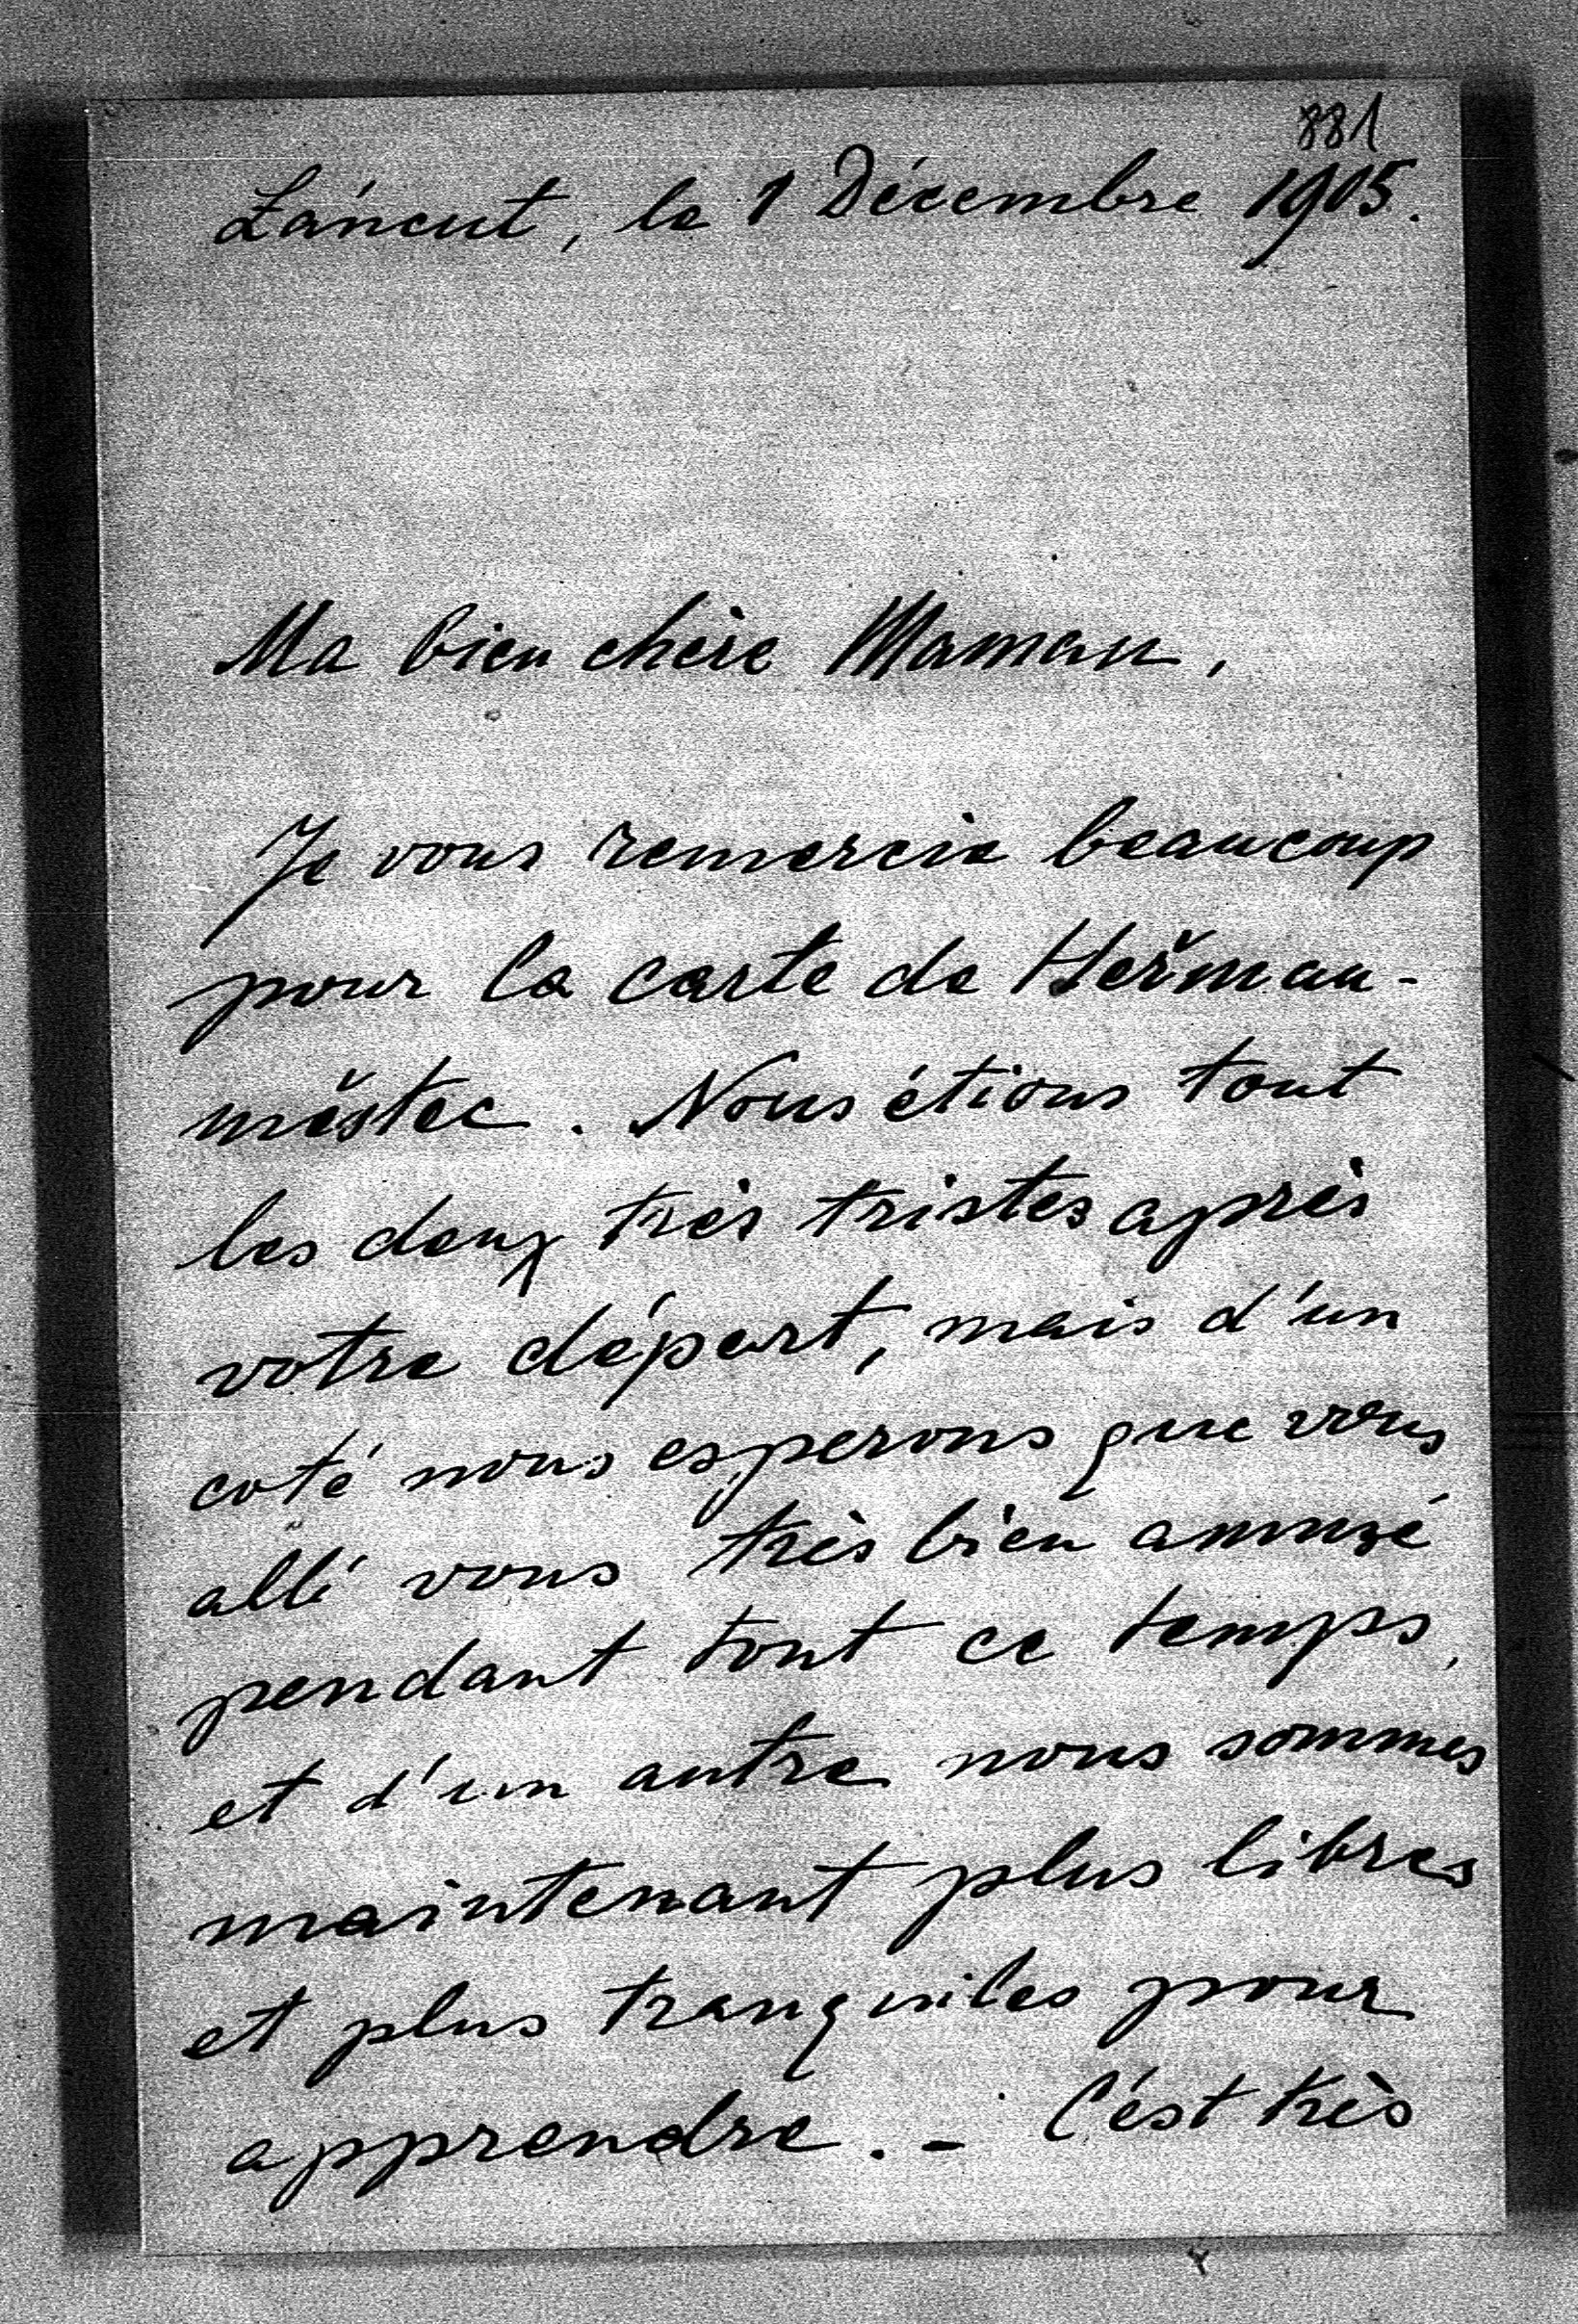 881
Łańcut, le 1 Décembre 1905.
Ma bien chère Maman,
Je vous remercie beaucoup
pour la carte de Heřman-
městec. Nous étions tout
les deux très tristes après
votre départ, mais d'un
coté nous esperons que vous
allé vous très bien amusé
pendant tout ce temps,
et d'un autre nous sommes
maintenant plus libres
et plus tranquiles pour
apprendre. - C'ést très